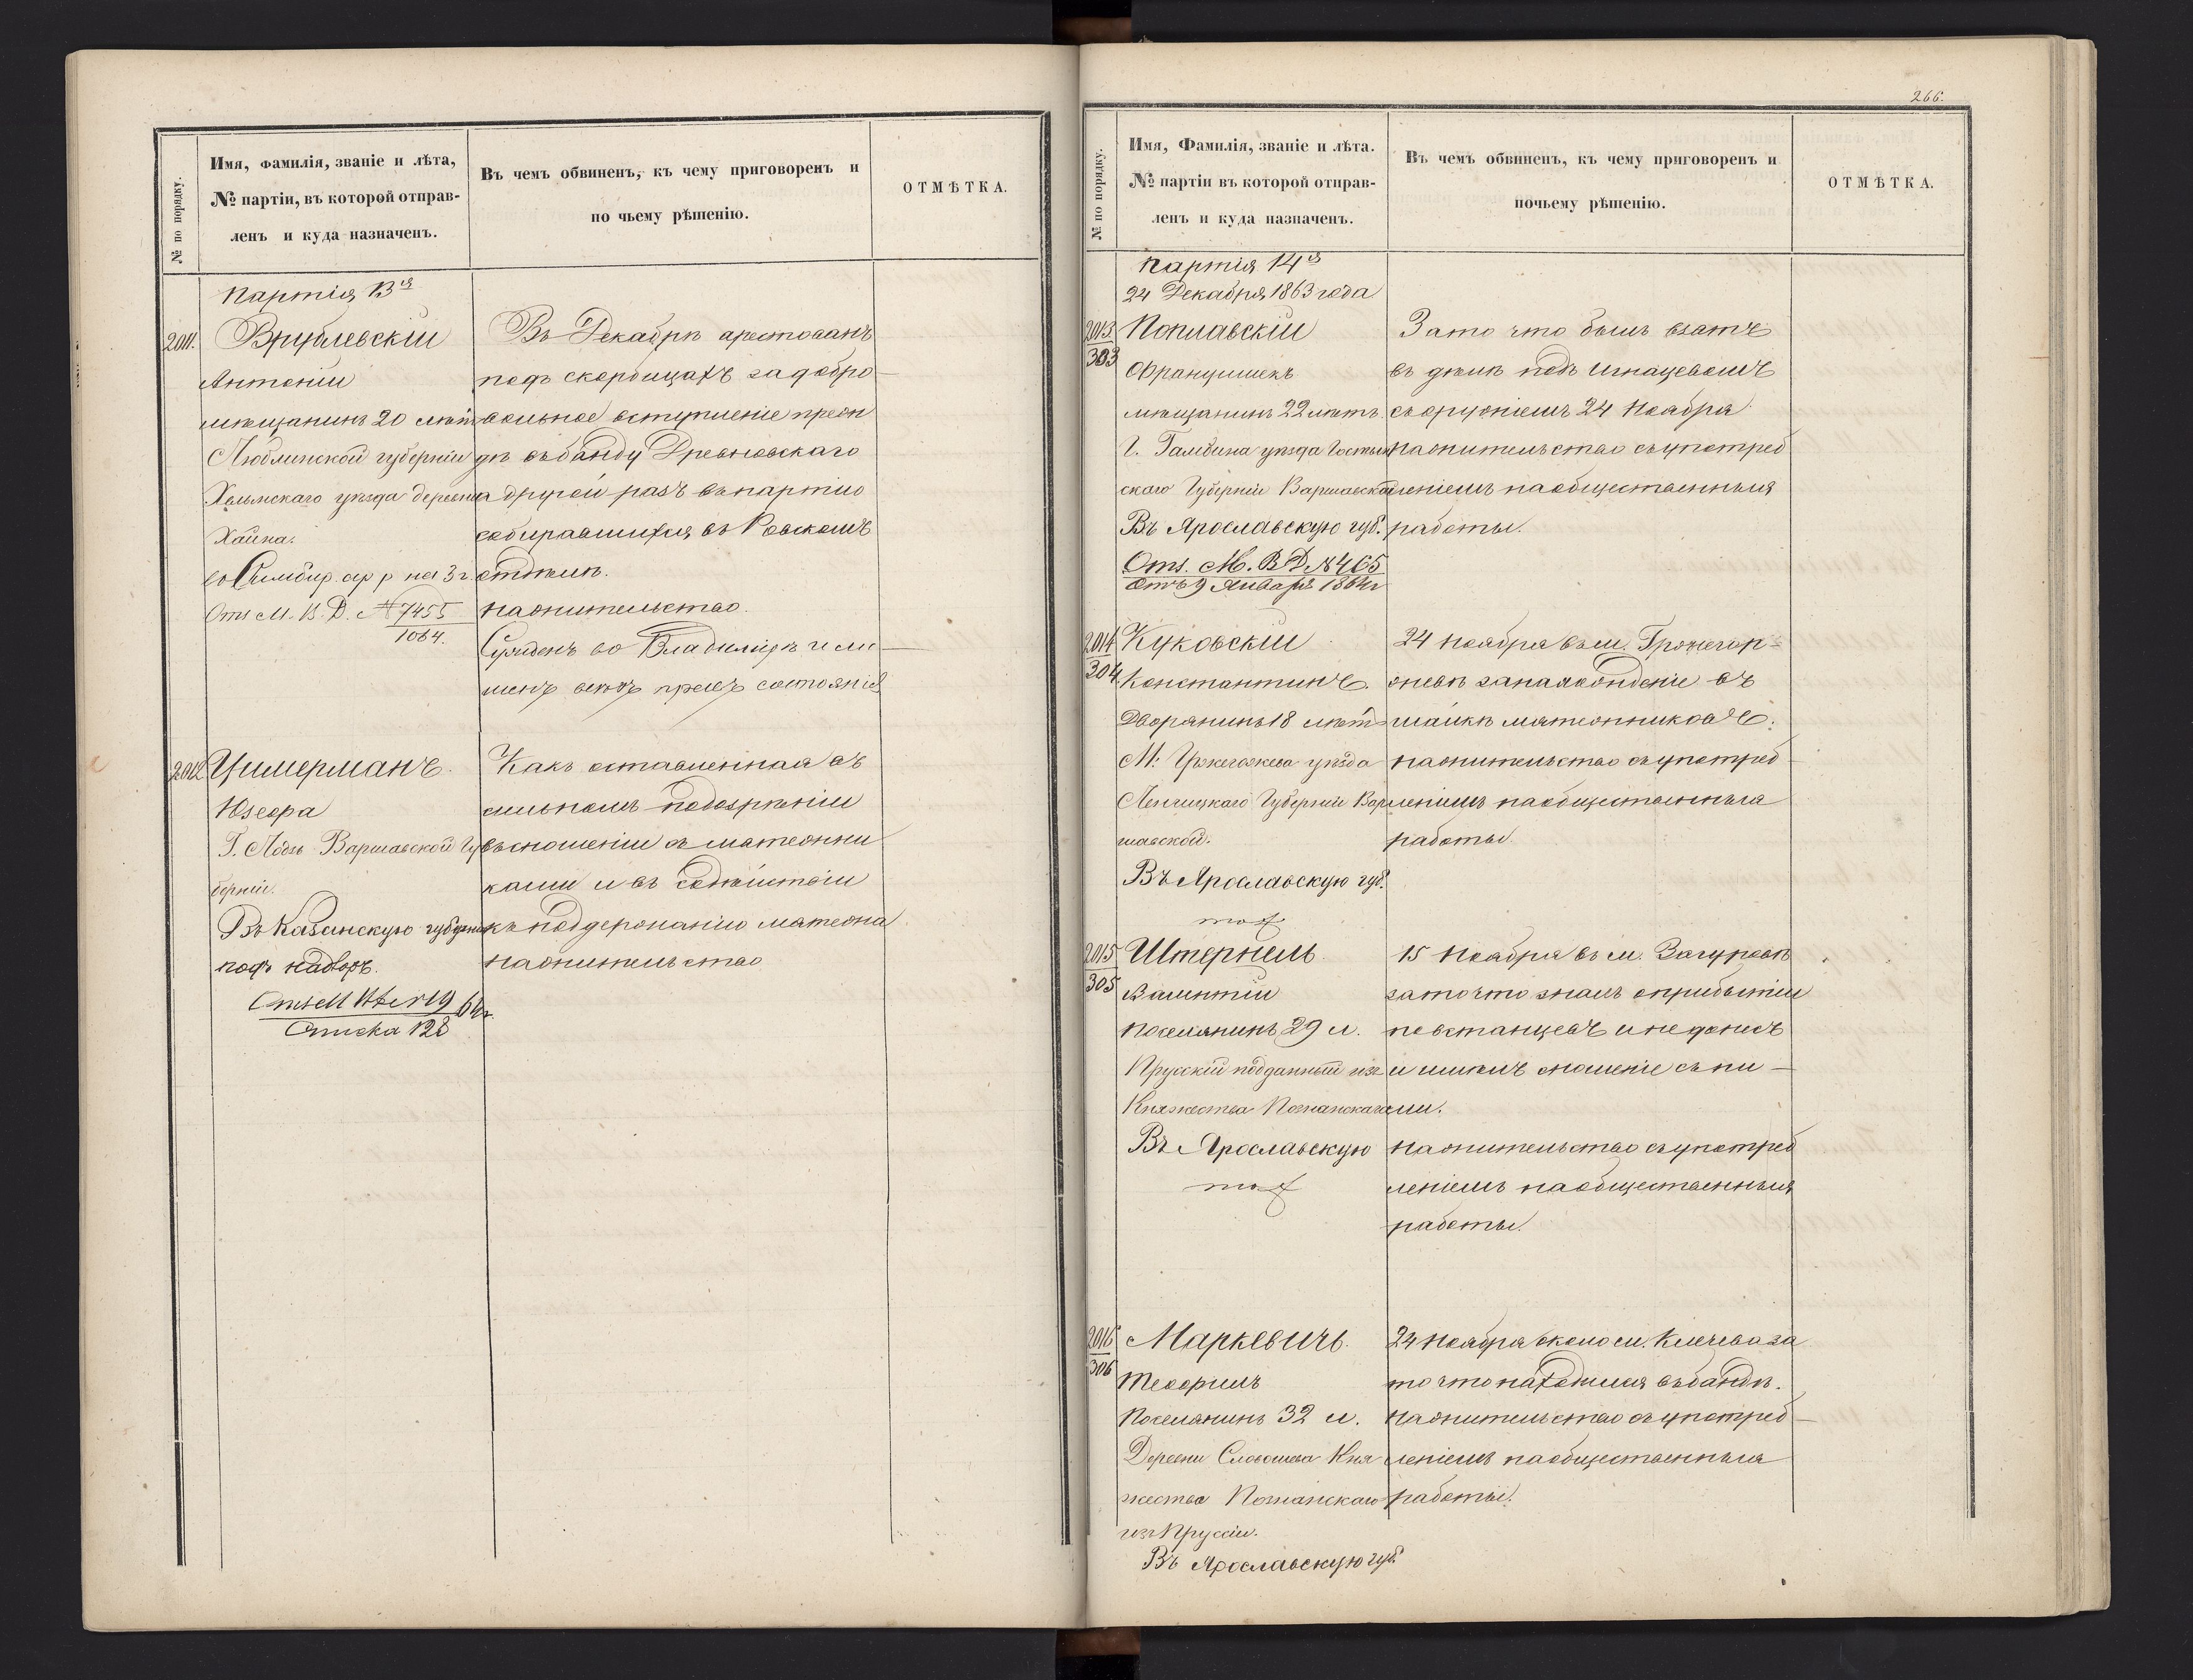 № по порядку.
Имя, фамилія, званіе и лѣта,
№ партіи, въ которой отправ-
ленъ и куда назначенъ.
Въ чемъ обвиненъ, къ чему приговоренъ и
по чьему рѣшенію.
ОТМѢТКА.
Партія 13я
2011.
Врублевскій
Антоній
мѣщанинъ 20 лѣтъ
Люблинской губерніи
Холмскаго уѣзда деревни
Хайна.
во Симбир. ар р на 3 г.
Отн М. В. Д. № 7455
1864.
Въ Декабрѣ арестованъ
подъ скербицахъ за добро
вольное вступленіе прежде
въ банду Древновскаго
а другой разъ въ партію
собиравшихся въ Ровскомъ
отдѣлѣ.
на жительство.
Сужденъ во Владимірѣ и ли
шенъ всѣхъ правъ состоянія
2012
Цимерманъ.
Юзефа
Г. Лодзь Варшавской Гу
берніи.
Въ Казанскую губернію
подъ надзоръ.
Списка 128
Какъ оставленная въ
сильномъ подозрѣніи
въ сношеніи съ мятежни
ками и въ содѣйствіи
къ поддержанію мятежа
на жительство
266.
№ по порядку.
Имя, Фамилія, званіе и лѣта.
№ партіи въ которой отправ-
ленъ и куда назначенъ.
Въ чемъ обвиненъ, къ чему приговоренъ и
почьему рѣшенію.
ОТМѢТКА.
Партія 14я
24 Декабря 1863 года
2013
303
Поплавскій
Францишекъ
мѣщанинъ 22 лѣтъ.
Г. Гамбина уѣзда Гостын
скаго Губерніи Варшавской
Въ Ярославскую губ.
Отн. М. В Д № 465
отъ 9 Января 1864 г
За то что былъ взятъ
въ дѣлѣ подъ Игнацевомъ
съ оружіемъ 24 Ноября
на жительство съ употреб
леніемъ на общественныя
работы.
2014
304
Куковскій
Константинъ.
Дворянинъ 18 лѣтъ
М: уѣзда
Ленчицкаго Губерніи Вар
шавской.
Въ Ярославскую губ.
тож
24 Ноября въ м.
за нахожденіе въ
шайкѣ мятежниковъ.
на жительство съ употреб
леніемъ на общественныя
работы
2015
305
Штерпель
Валентій
Поселянинъ 29 л.
Прусскій подданный изъ
Княжества Познанскаго
Въ Ярославскую
тож
15 Ноября въ м. Загуровѣ
за то что зналъ о прибытіи
повстанцевъ и не донесъ
и имѣлъ сношеніе съ ни
ми.
на жительство съ употреб
леніемъ на общественныя
работы.
2016
306
Маркевичъ.
Теофилъ
Поселянинъ 32 л.
Деревни Словошева Кня
жества Познанскаго
изъ Пруссіи.
Въ Ярославскую губ.
24 Ноября около м. Клечева за
то что находился въ бандѣ.
на жительство съ употреб
леніемъ на общественныя
работы.